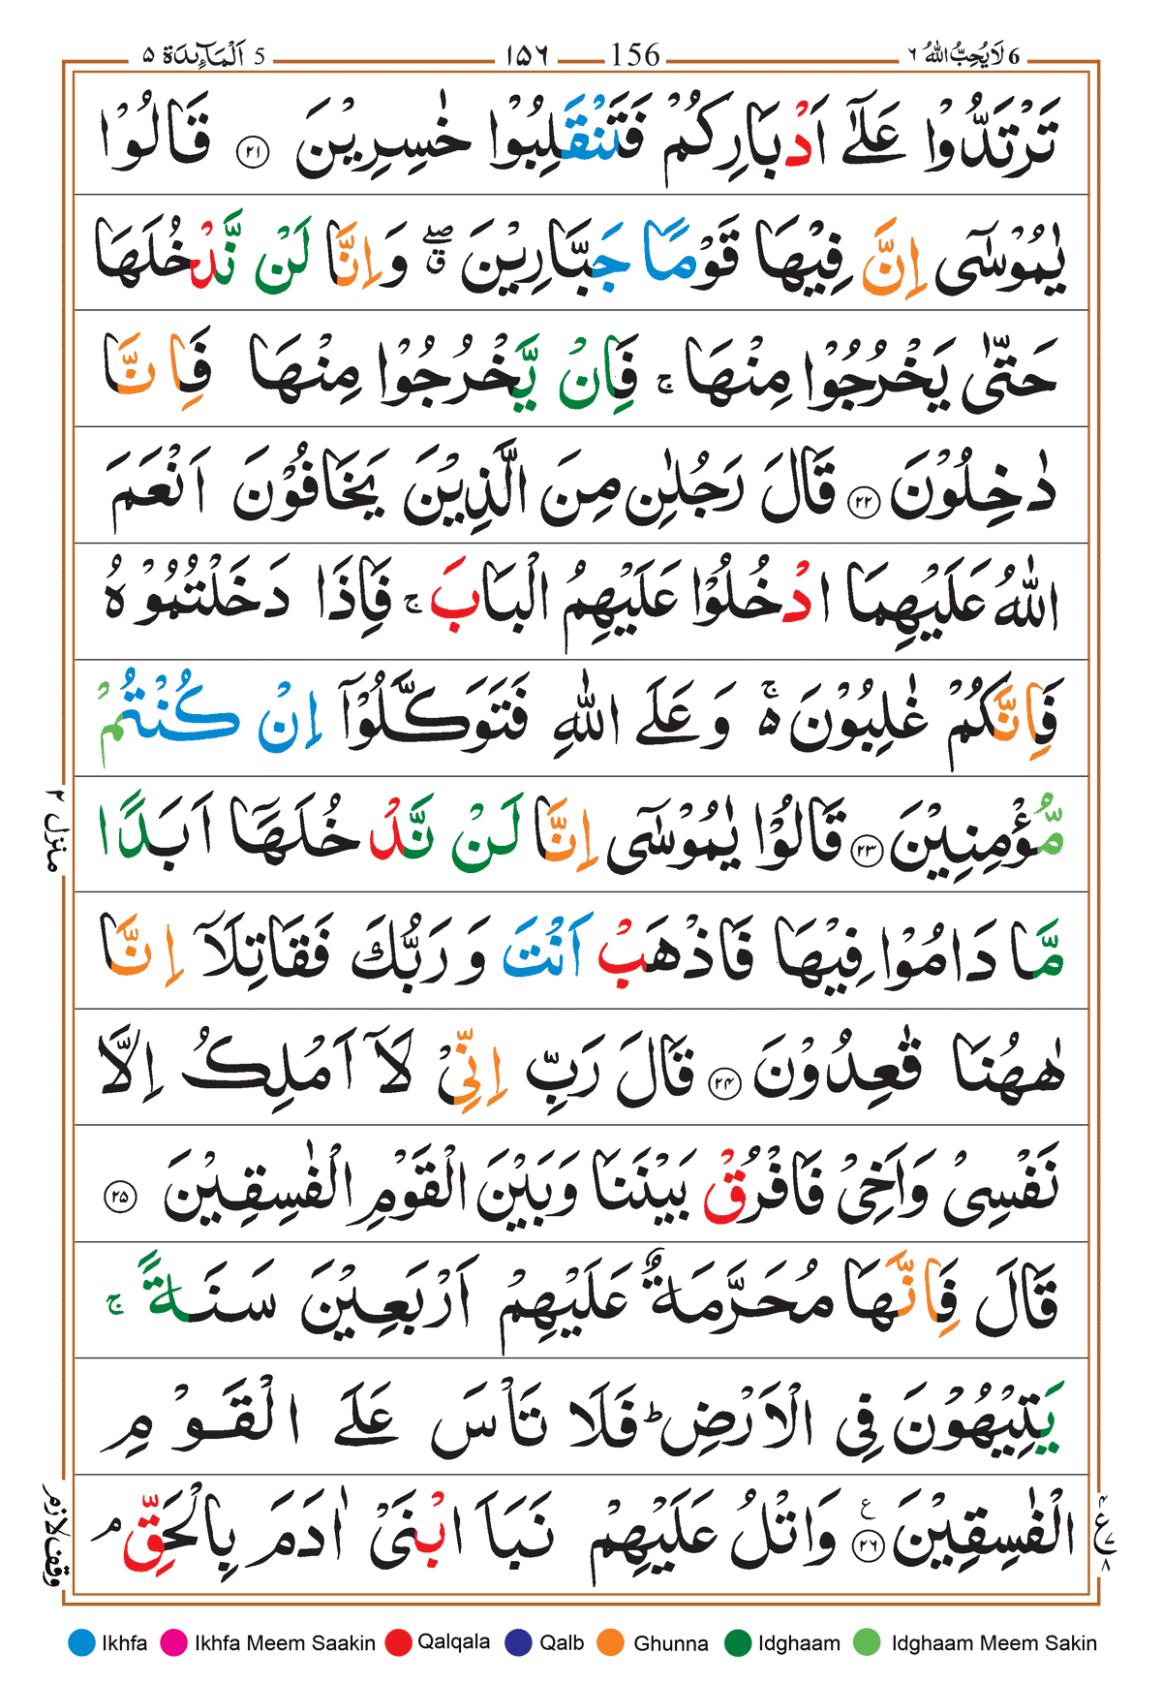 5 اَلْمَآئِدَة ۵
۱۵۶ 156
6 لَا يُحِبُّ اللّٰهُ ۶
تَرْتَدُّوْا عَلٰٓى اَدْبَارِكُمْ فَتَنْقَلِبُوْا خٰسِرِيْنَ ۲۱ قَالُوْا
يٰمُوْسٰٓى اِنَّ فِيْهَا قَوْمًا جَبَّارِيْنَ ۖۗ وَاِنَّا لَنْ نَّدْخُلَهَا
حَتّٰى يَخْرُجُوْا مِنْهَا ۚ فَاِنْ يَّخْرُجُوْا مِنْهَا فَاِنَّا
دٰخِلُوْنَ ۲۲ قَالَ رَجُلٰنِ مِنَ الَّذِيْنَ يَخَافُوْنَ اَنْعَمَ
اللّٰهُ عَلَيْهِمَا ادْخُلُوْا عَلَيْهِمُ الْبَابَ ۚ فَاِذَا دَخَلْتُمُوْهُ
فَاِنَّكُمْ غٰلِبُوْنَ ۵ۚ وَعَلَى اللّٰهِ فَتَوَكَّلُوْٓا اِنْ كُنْتُمْ
مُّؤْمِنِيْنَ ۲۳ قَالُوْا يٰمُوْسٰٓى اِنَّا لَنْ نَّدْخُلَهَآ اَبَدًا
مَّا دَامُوْا فِيْهَا فَاذْهَبْ اَنْتَ وَرَبُّكَ فَقَاتِلَآ اِنَّا
هٰهُنَا قٰعِدُوْنَ ۲۴ قَالَ رَبِّ اِنِّىْ لَآ اَمْلِكُ اِلَّا
نَفْسِىْ وَاَخِىْ فَافْرُقْ بَيْنَنَا وَبَيْنَ الْقَوْمِ الْفٰسِقِيْنَ ۲۵
قَالَ فَاِنَّهَا مُحَرَّمَةٌ عَلَيْهِمْ اَرْبَعِيْنَ سَنَةً ۚ
يَتِيْهُوْنَ فِى الْاَرْضِ ؕ فَلَا تَاْسَ عَلَى الْقَوْمِ
الْفٰسِقِيْنَ ۲۶ ع وَاتْلُ عَلَيْهِمْ نَبَاَ ابْنَىْ اٰدَمَ بِالْحَقِّ ۘ
منزل ۲
وقف لازم
Ikhfa Ikhfa Meem Saakin Qalqala Qalb Ghunna Idghaam Idghaam Meem Sakin